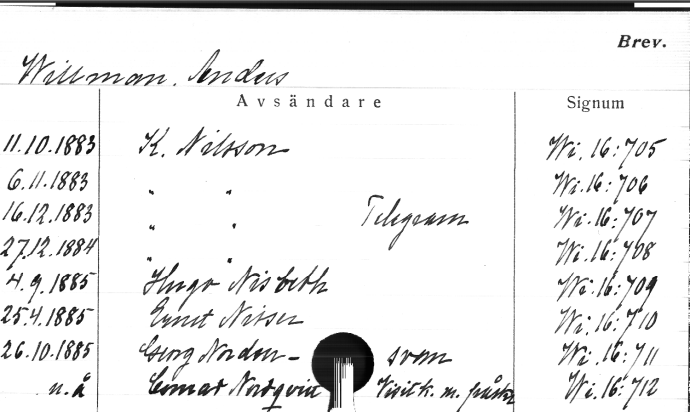 Brev.
Willman. Anders
Avsändare Signum
11.10.1883 K. Nilsson Wi. 16:705
6.11.1883 " " Wi. 16:706
16.12.1883 " " Telegram Wi. 16:707
27.12.1884 " " Wi. 16:708
4.9.1885 Hugo Nisbeth Wi. 16:709
25.4.1885 Ernst Nitser Wi. 16:710
26.10.1885 Georg Norden- svan Wi. 16:711
u.å Conrad Nordqvist Visitk. m. påskr. Wi. 16:712